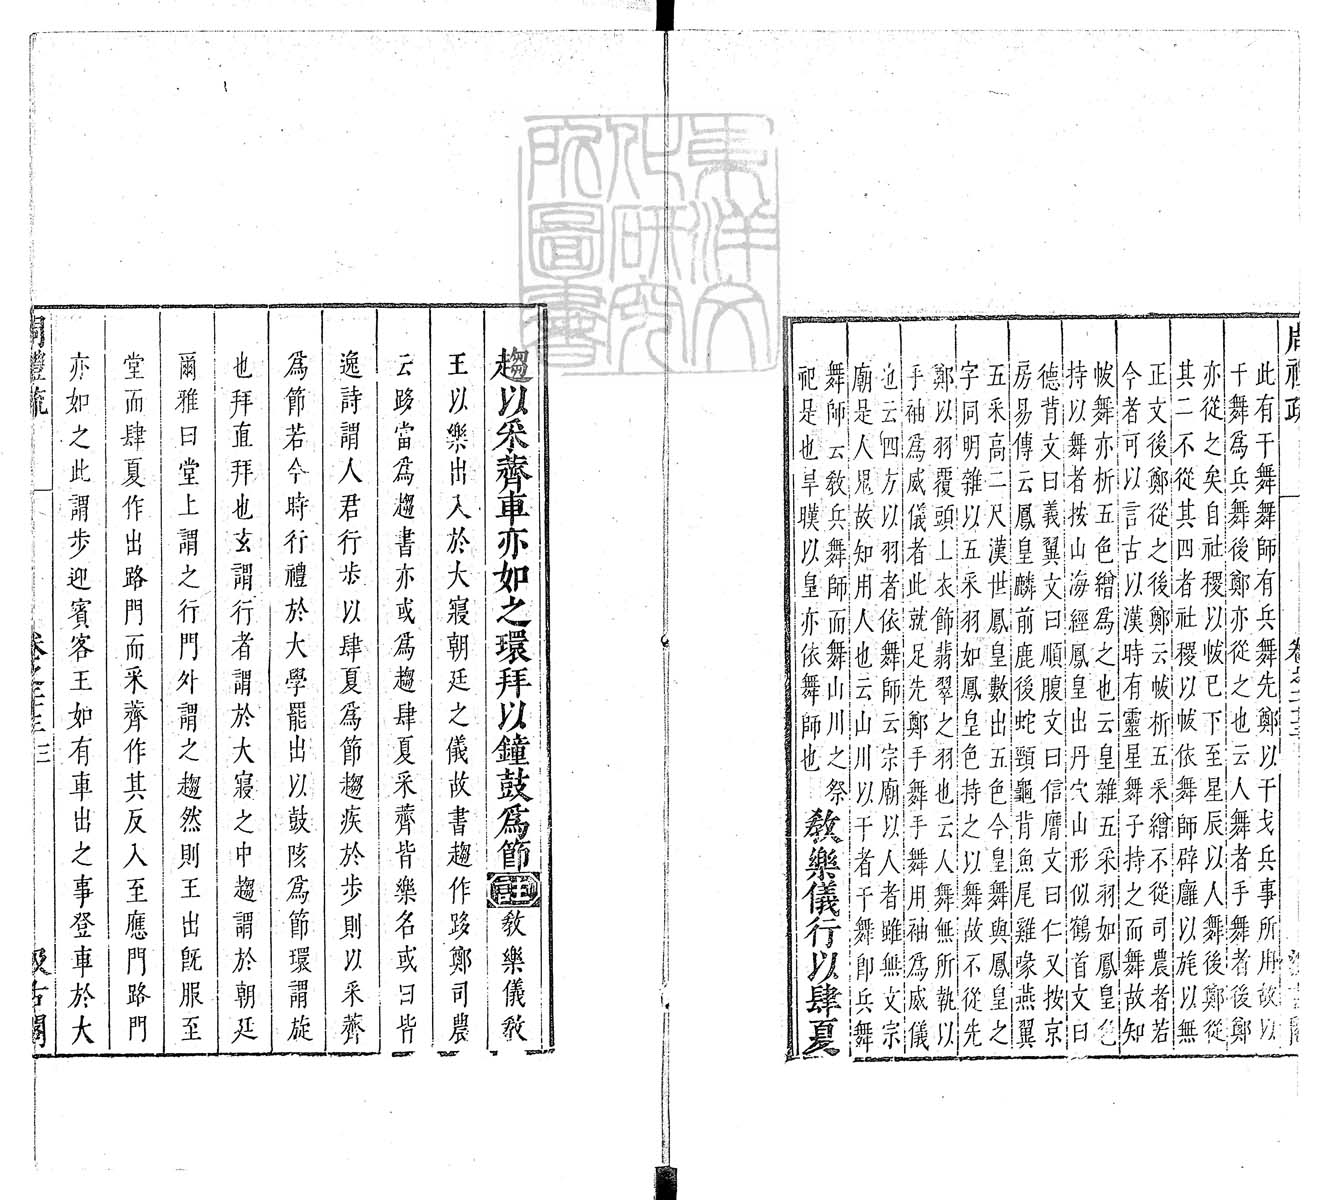 周禮疏
卷之二十三
汲古閣
此有干舞舞師有兵舞先鄭以干戈兵事所用故以
干舞爲兵舞後鄭亦從之也云人舞者手舞者後鄭
亦從之矣自社稷以帗已下至星辰以人舞後鄭從
其二不從其四者社稷以帗依舞師辟廱以旄以無
正文後鄭從之後鄭云帗析五采繒不從司農者若
今者可以言古以漢時有靈星舞子持之而舞故知
帗舞亦析五色繒爲之也云皇雜五采羽如鳳皇色
持以舞者按山海經鳳皇出丹穴山形似鶴首文曰
德背文曰義翼文曰順腹文曰信膺文曰仁又按京
房易傳云鳳皇麟前鹿後蛇頸龜背魚尾雞喙燕翼
五采高二尺漢世鳳皇數出五色今皇舞與鳳皇之
字同明雜以五采羽如鳳皇色持之以舞故不從先
鄭以羽覆頭上衣飾翡翠之羽也云人舞無所執以
手袖爲威儀者此就足先鄭手舞手舞用袖爲威儀
也云四方以羽者依舞師云宗廟以人者雖無文宗
廟是人鬼故知用人也云山川以干者干舞卽兵舞
舞師云敎兵舞師而舞山川之祭
祀是也旱暵以皇亦依舞師也
敎樂儀行以肆夏
趨以采薺車亦如之環拜以鐘鼓爲節註敎樂儀敎
王以樂出入於大寢朝廷之儀故書趨作跢鄭司農
云跢當爲趨書亦或爲趨肆夏采薺皆樂名或曰皆
逸詩謂人君行步以肆夏爲節趨疾於步則以采薺
爲節若今時行禮於大學罷出以鼓陔爲節環謂旋
也拜直拜也玄謂行者謂於大寢之中趨謂於朝廷
爾雅曰堂上謂之行門外謂之趨然則王出旣服至
堂而肆夏作出路門而采薺作其反入至應門路門
亦如之此謂步迎賓客王如有車出之事登車於大
周禮疏
卷之二十三
三
汲古閣
東洋文化研究所圖書